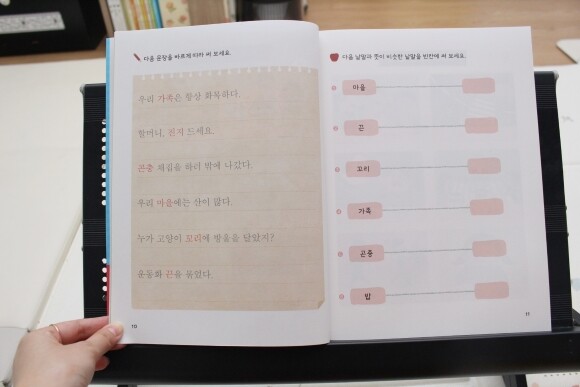 다음 문장을 바르게 따라 써 보세요.
우리 가족은 항상 화목하다.
할머니, 진지 드세요.
곤충 채집을 하러 밖에 나갔다.
우리 마을에는 산이 많다.
누가 고양이 꼬리에 방울을 달았지?
운동화 끈을 묶었다.
10
다음 낱말과 뜻이 비슷한 낱말을 빈칸에 써 보세요.
마을
끈
꼬리
가족
곤충
밥
11